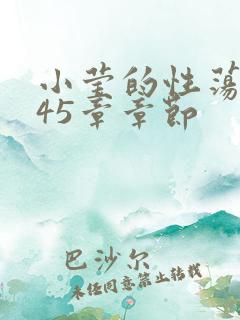 小莹的性荡
45章章节
巴沙尔
未经同意禁止转载